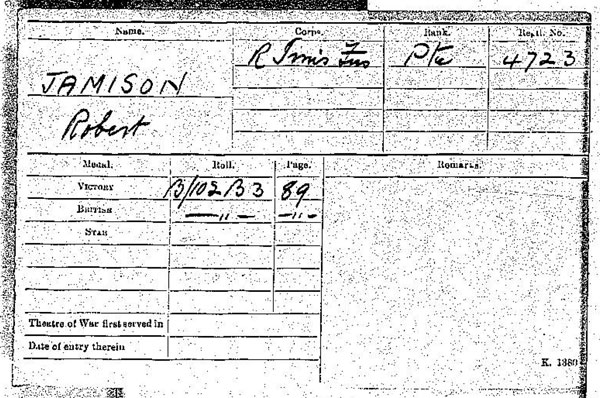 Name. Corps. Rank. Regtl. No.
JAMISON R Innis Fus Pte 4723
Robert
Medal. Roll. Page. Remarks.
VICTORY B/102 B3 89
BRITISH —〃— —〃—
STAR
Theatre of War first served in
Date of entry therein
K. 1380